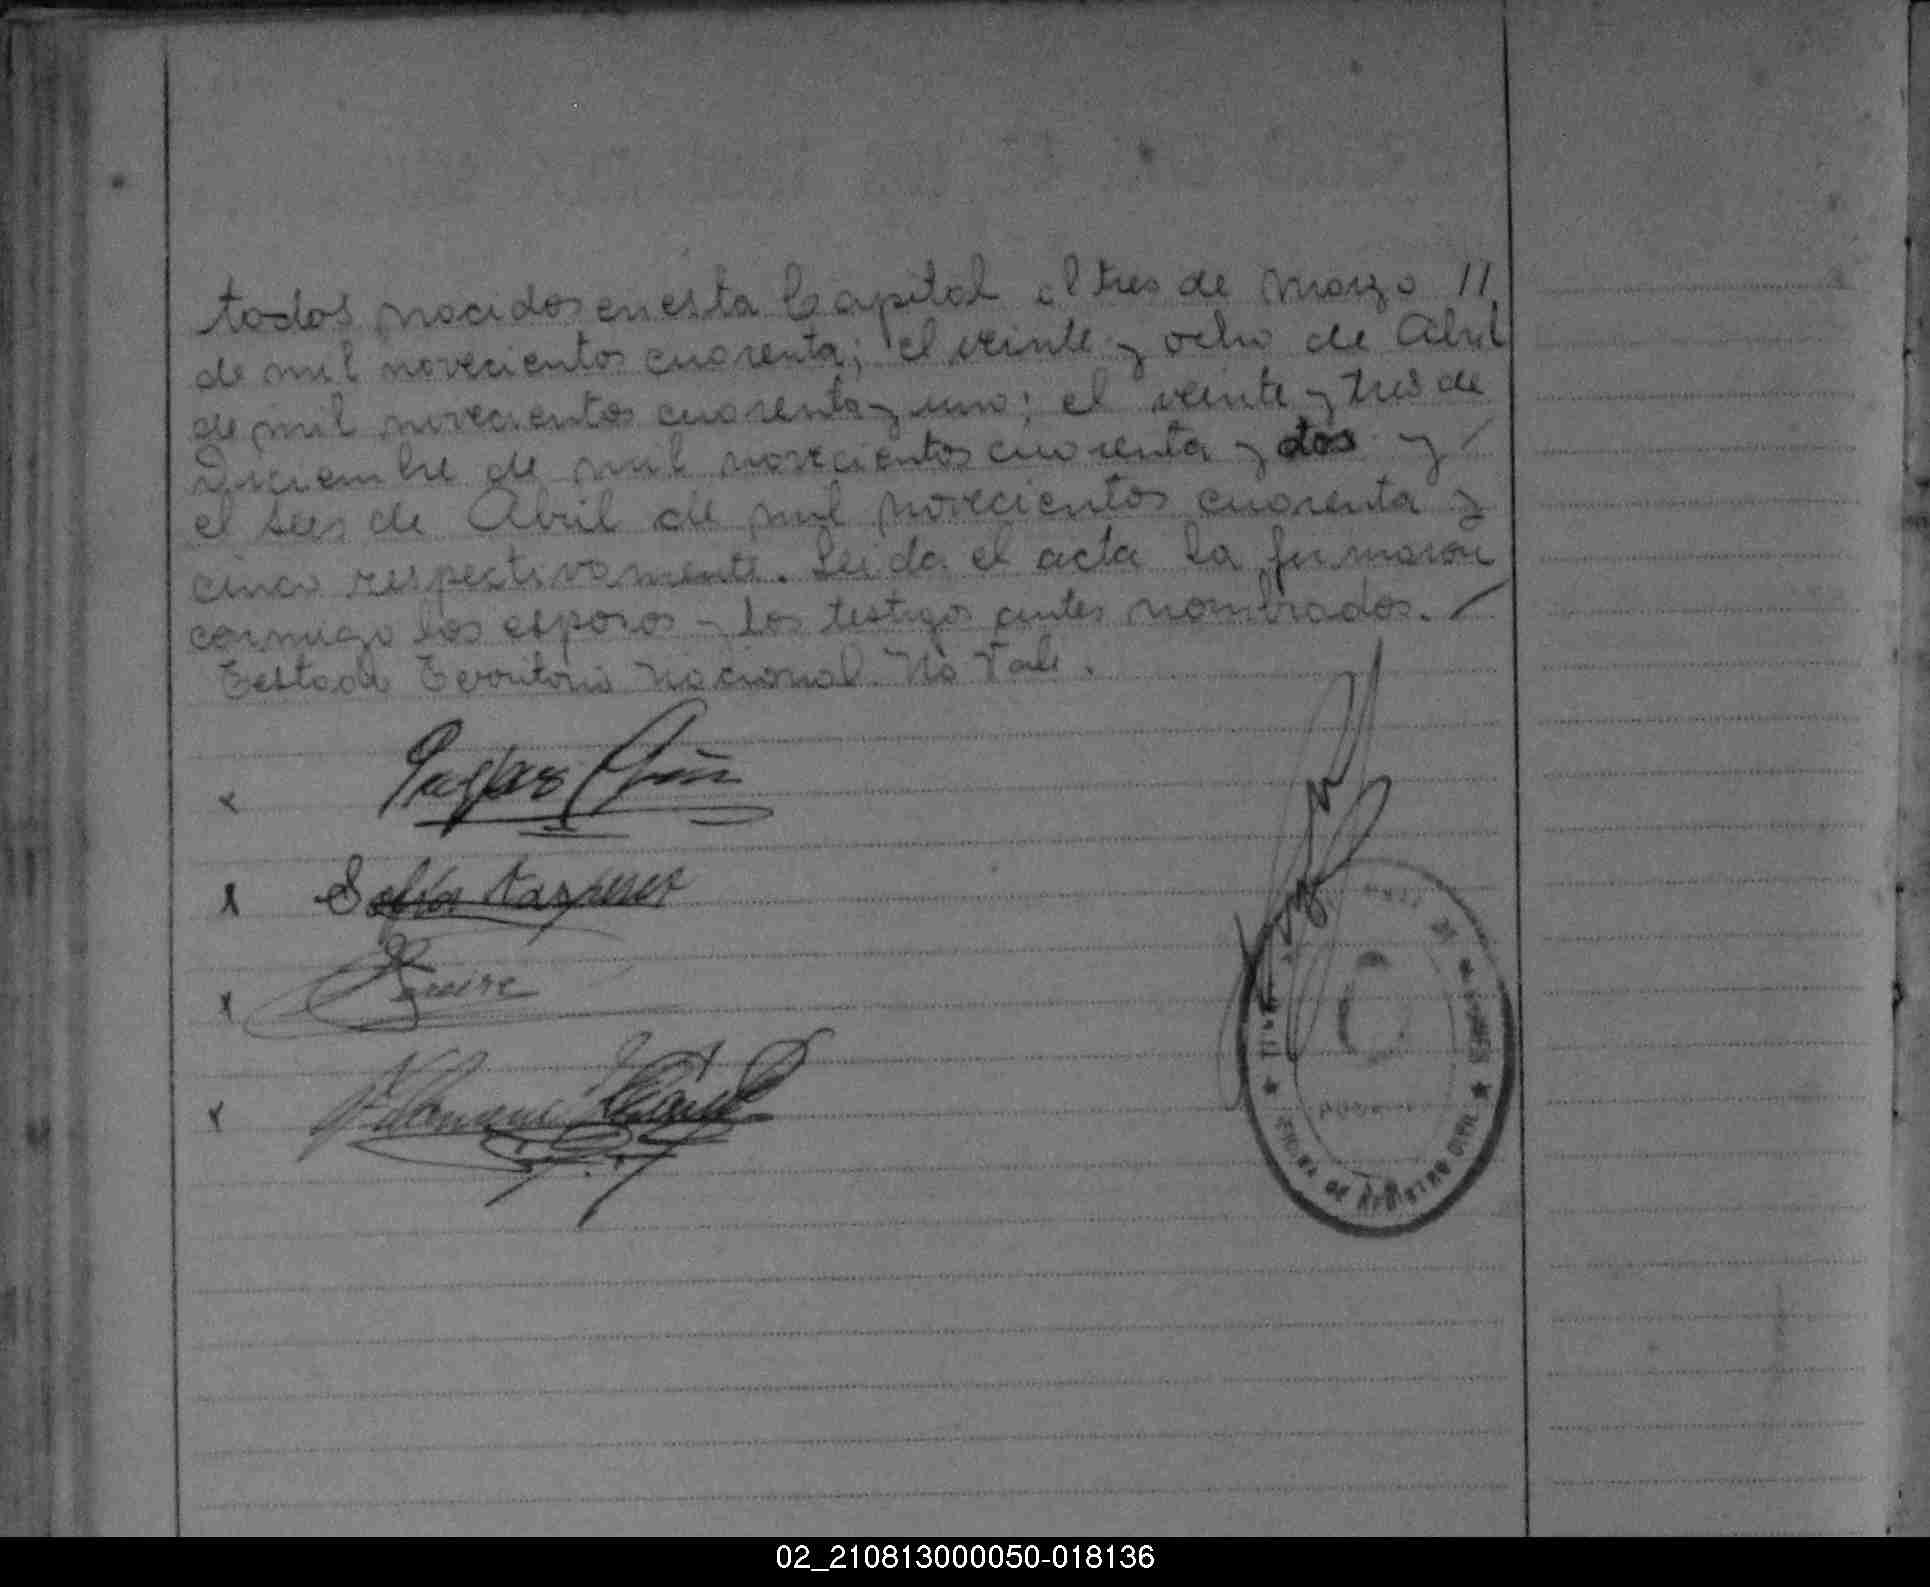 todos nacidos en esta Capital el tres de Marzo //
de mil novecientos cuarenta; el veinte y ocho de Abril
de mil novecientos cuarenta y uno; el veinte y tres de
Diciembre de mil novecientos cuarenta y dos y /
el seis de Abril de mil novecientos cuarenta y
cinco respectivamente. Leida el acta la firmaron
conmigo los esposos y los testigos antes nombrados. /
Testado Territorio Nacional No Vale.
x
x
x
x
DE REGISTRO CIVIL
02_210813000050-018136